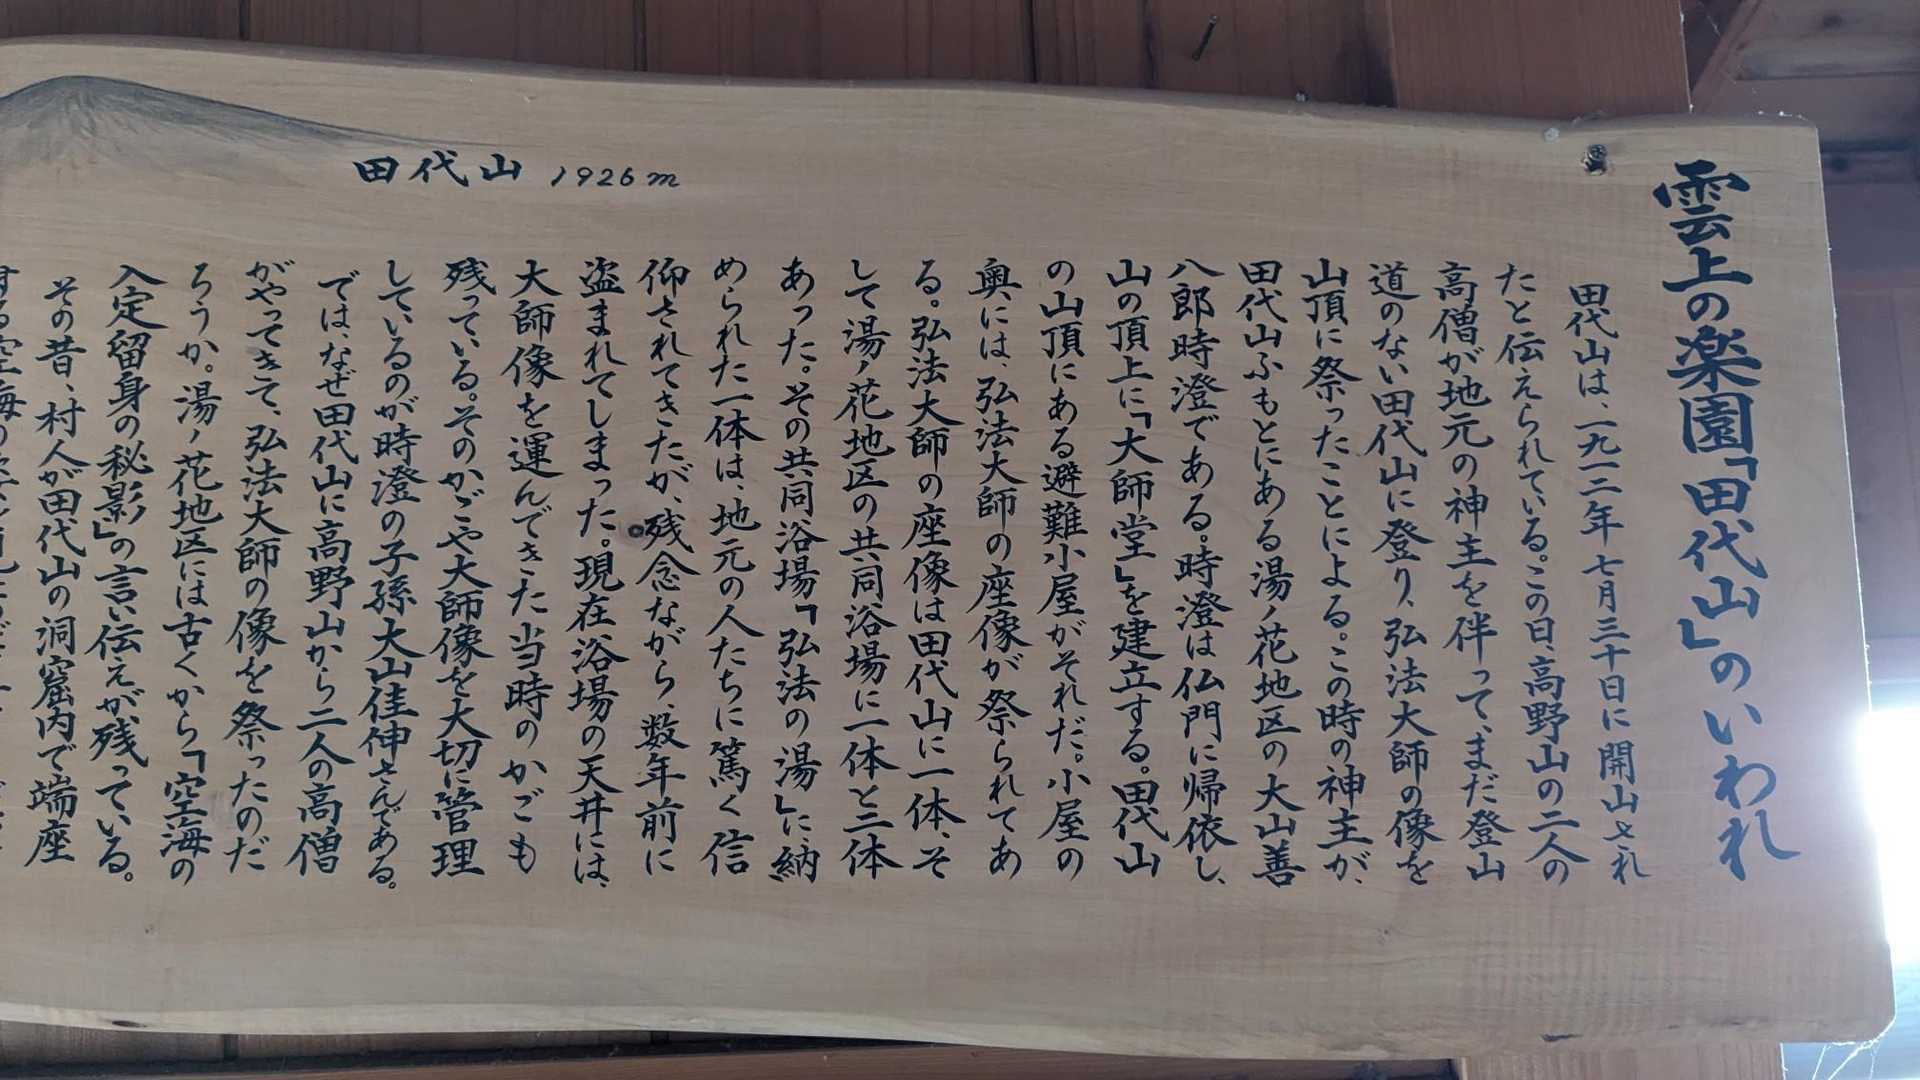 雲上の楽園「田代山」のいわれ
田代山 1926m
田代山は、一九一二年七月三十日に開山され
たと伝えられている。この日、高野山の二人の
高僧が地元の神主を伴って、まだ登山
道のない田代山に登り、弘法大師の像を
山頂に祭ったことによる。この時の神主が、
田代山ふもとにある湯ノ花地区の大山善
八郎時澄である。時澄は仏門に帰依し、
山の頂上に「大師堂」を建立する。田代山
の山頂にある避難小屋がそれだ。小屋の
奥には、弘法大師の座像が祭られてあ
る。弘法大師の座像は田代山に一体、そ
して湯ノ花地区の共同浴場に一体と二体
あった。その共同浴場「弘法の湯」に納
められた一体は、地元の人たちに篤く信
仰されてきたが、残念ながら、数年前に
盗まれてしまった。現在浴場の天井には、
大師像を運んできた当時のかごも
残っている。そのかごや大師像を大切に管理
しているのが時澄の子孫大山佳伸さんである。
では、なぜ田代山に高野山から二人の高僧
がやってきて、弘法大師の像を祭ったのだ
ろうか。湯ノ花地区には古くから「空海の
入定留身の秘影」の言い伝えが残っている。
その昔、村人が田代山の洞窟内で端座
する空海の